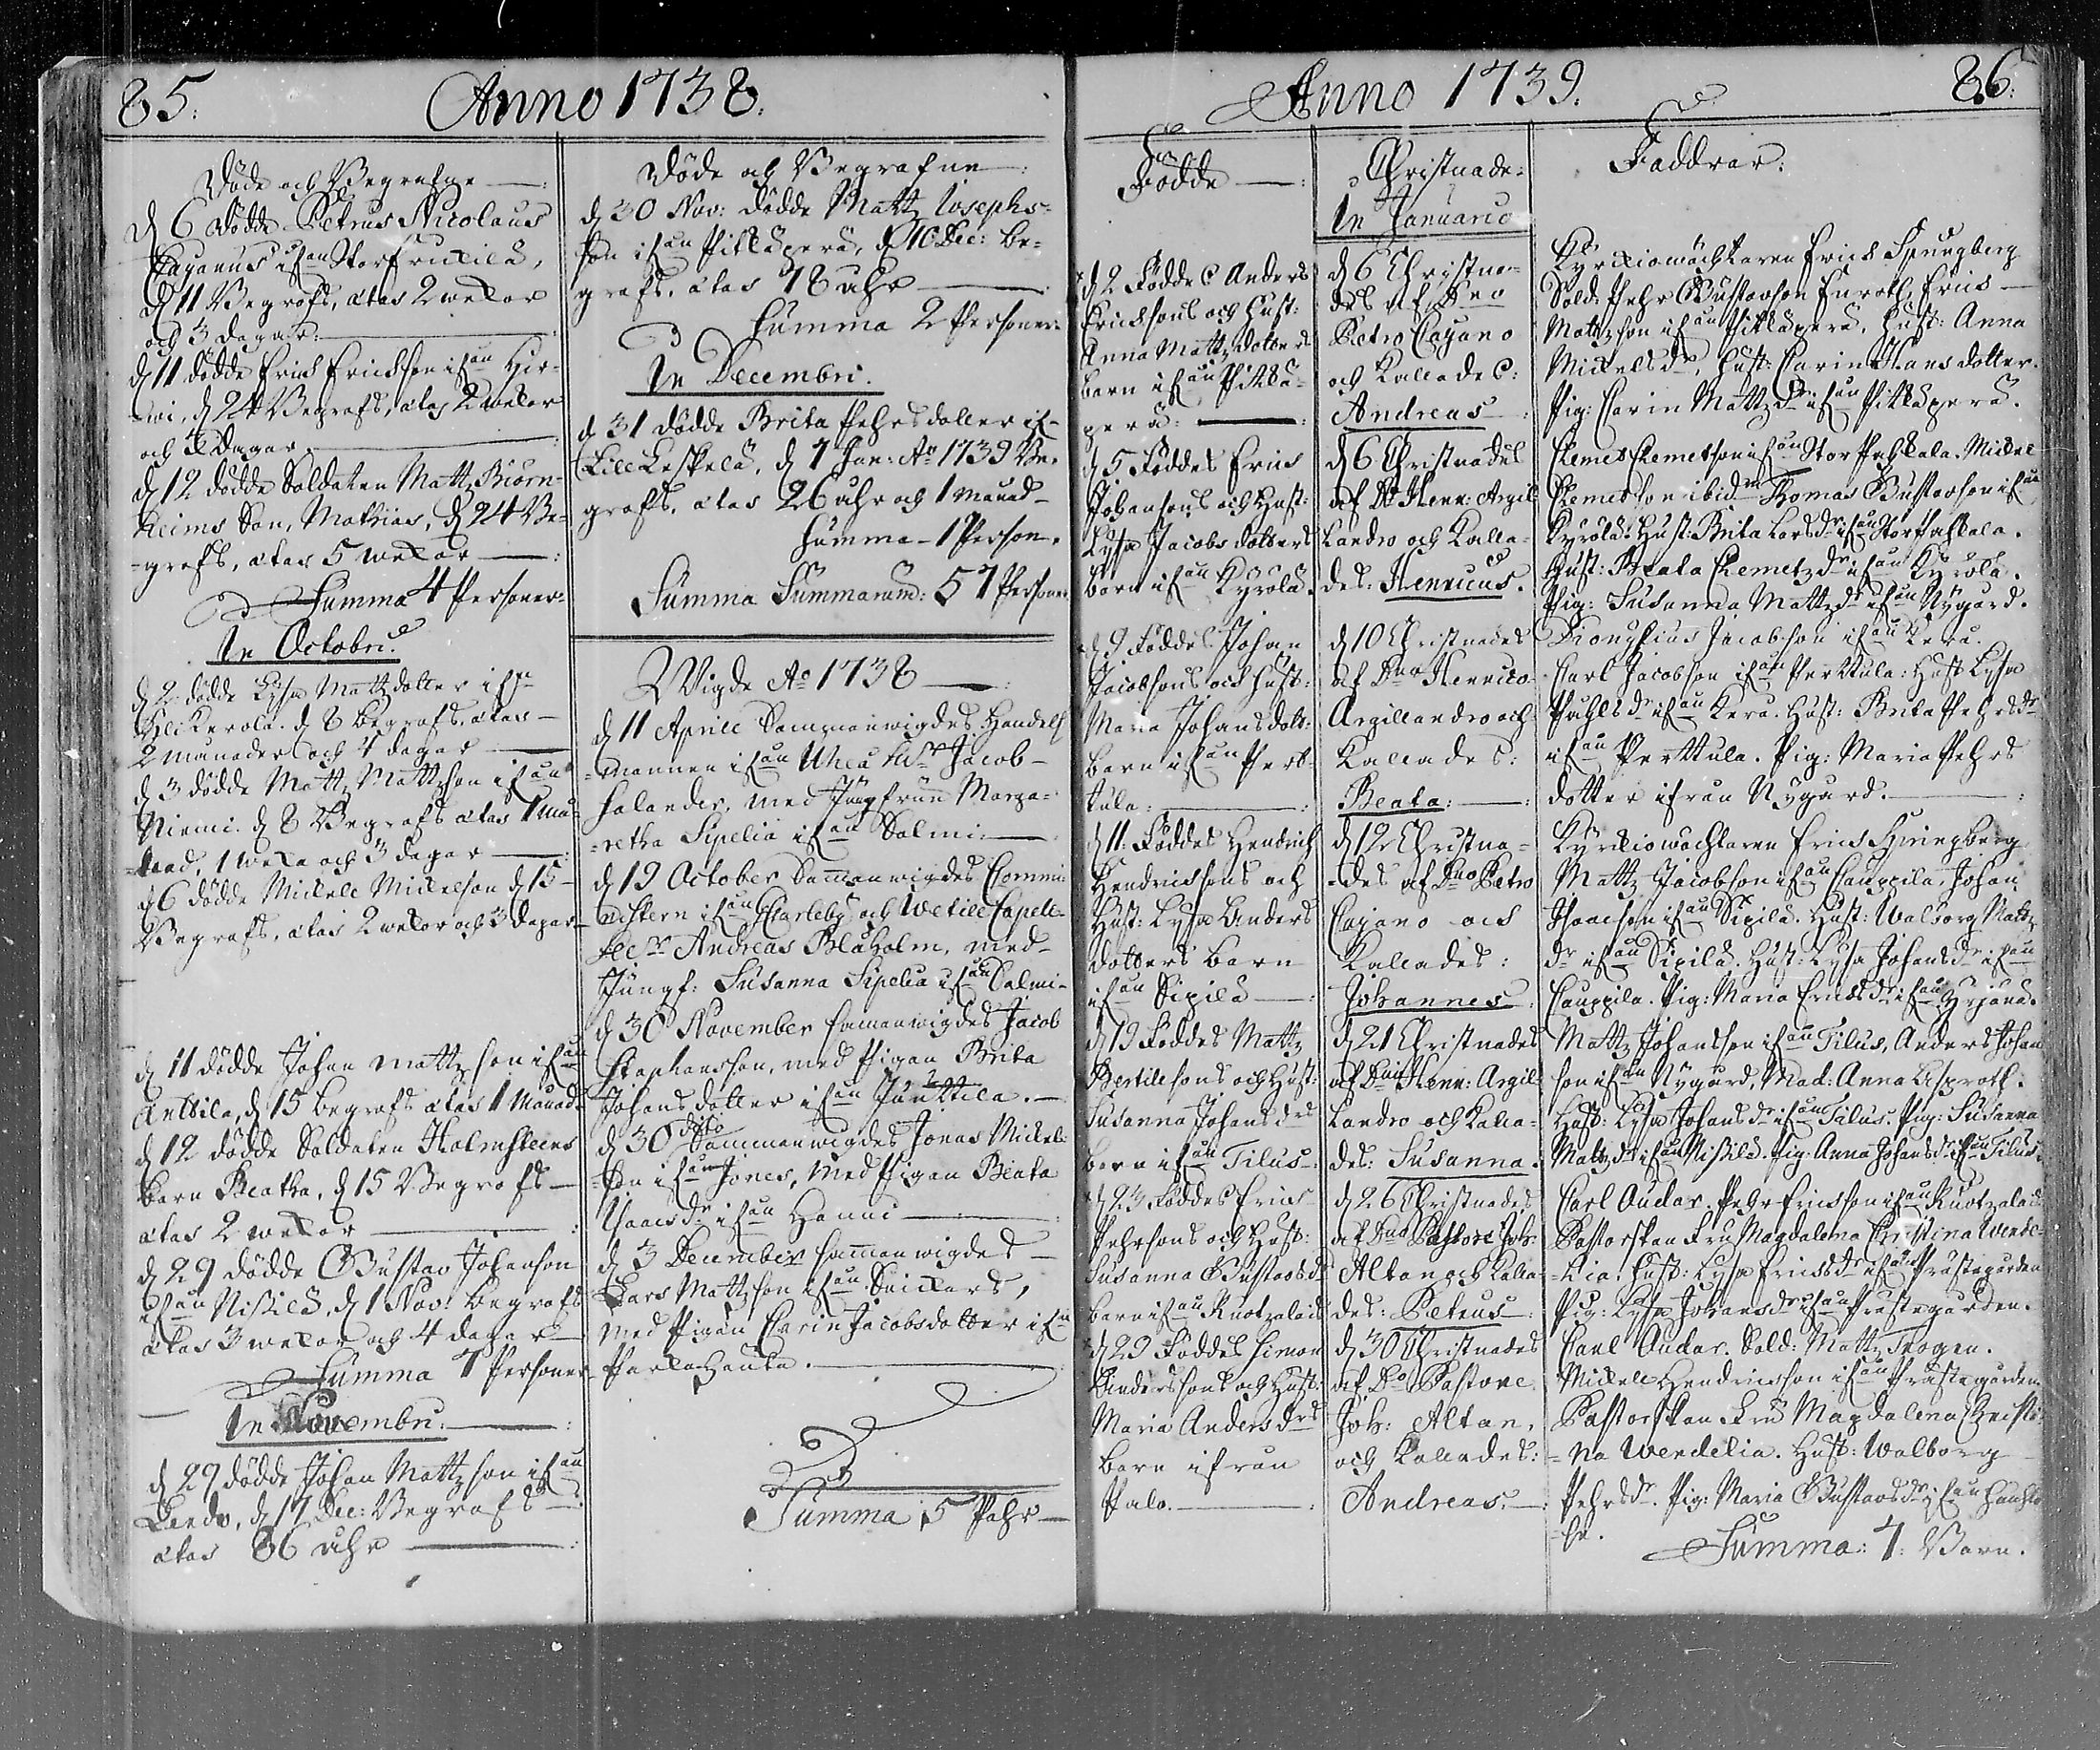 85.
Anno 1738.
Döde och Begrafne
d 6 dödde Petrus Nicolaus
Cajanus ifrån Storfruxilä,
d 11 Begrofs, ætas 2 wekor
och 3 dagar
d 11 dödde Erich Erichson ifrån
d 24 Begrofs, ætas 2 wekor
och dagar
d 12 dödde Soldaten Mattz Biörn-
heims Son, Mathias, d 24 Be-
grofs, ætas 5 wekor
Summa 4 Personer
In Octobri.
d 2 dödde Lysa Mattzdotter ifrån
Yli Kerola. d 8 begrofs, ætas
2 månader och 4 dagar
d 3 dödde Mattz Mattzson ifrån
Niemi. d 8 Begrofs ætas 1 må-
nad, 1 weka och 3 dagar
d 6 dödde Mickell Mickelson d 15
Begrofs, ætas 2 wekor och 3 dagar
d 11 dödde Johan Mattzson ifrån
Anttila, d 15 begrofs ætas 1 Månad
d 12 dödde Soldaten Holmsteens
barn Beatha, d 15 Begrofs
ætas 2 wekor
d 29 dödde Gustav Johanson
ifrån Nißilä, d 1 Nov: begrofs
ætas 3 wekor och 4 dagar
Summa 7 Personer
In Novembri.
d 29 dödde Johan Mattzson ifrån
d 17 Dec: Begrofs
ætas 86 åhr
Döde och Begrafne
d 30 Nov: dödde Mattz Josephs-
son ifrån Pitkäperä, d 10 Dec: be-
grofs, ætas 78 åhr
Summa 2 Personer
In Decembri.
d 31 dödde Brita Pehrsdotter if:
Lill Leskelä, d 7 Jan: Aº 1739 Be-
grofs, ætas 26 åhr och 1 Månad
Summa 1 Person.
Summa Summarum: 57 Personer
Wigde Aº 1738
d 11 Aprill Sammanwigdes Handels
mannen ifrån Uhleå Hr Jacob
Salander, med Jungfrun Marga-
retha Sipelia ifrån Salmi
d 19 October Sammanwigdes Commi
nistern ifrån Carleby och Wetill Capell
Hr Andreas Blåholm, med
Jungf: Susanna Sipelia ifrån Salmi
d 30 November sammanwigdes Jacob
Staphansson, med Pigan Brita
Johansdotter ifrån Junttila.
d 30 dito Sammanwigdes Jonas Mickel-
son ifrån Jones, med Pigan Beata
Isaacsdr ifrån Hanni
d 3 December sammanwigdes
Lars Mattzson ifrån Snickars,
med Pigan Carin Jacobsdotter ifrån
Parlahauta.
Summa 5 Pahr
Anno 1739.
86.
Födde
d 2 Föddes Anders
Ericksons och Hust:
Anna Mattzdotters
barn ifrån Pitkä-
perä:
d 5 Föddes Erics
Johansons och Hust:
Lysa Jacobsdotters
barn ifrån Kyrölä.
d 9 Föddes Johan
Jacobsons och Hust:
Maria Johansdott:
barn ifrån Pert-
tula:
d 11. Föddes Hendrich
Hendricksons och
Hust: Lysa Anders
dotters barn
ifrån Sipilä
d 19 Föddes Mattz
Bertilssons och Hust:
Susanna Johansdrs
barn ifrån Tilus
d 23 Föddes Erics
Pehrsons och Hust:
Susanna Gustavsdr
barn ifrån Ruotzalaid
d 29 Föddes Simon
Anderssons och Hust:
Maria Andersdrs
barn ifrån
Palo.
Christnade:
In Januario
d 6 Christna-
des af Dno
Petro Cajano
och Kallades:
Andreas
d 6 Christnades
af Do Henr: Argil
landro och Kalla-
des: Henricus.
d 10 Christnades
af Dno Henrico
Argillandro och
Kallades:
Beata:
d 12 Christna-
des af Dno Petro
Cajano och
Kallades:
Johannes
d 21 Christnades
af Dno Henr: Argil
landro och Kalla-
des: Susanna.
d 26 Christnades
af Dno Pastore Joh:
Altan och Kalla-
des: Petrus
d 30 Christnades
af Do Pastore
Joh: Altan,
och Kallades:
Andreas.
Faddrar:
Kyrkiowächtaren Erick Sprungberg
Sold: Pehr Gustavson Enroth, Erics
Mattzson ifrån Pitkäperä, Hust: Anna
Mickelsdr, Hust: Carin Hansdotter.
Pig: Carin Mattzdr ifrån Pitkäperä.
Clemet Clemetson ifrån Stor Pahkala. Mickel
Clemetson ibidm Thomas Gustavson ifrån
Kyrölä. Hust: Brita Larsdr ifrån Storpahkala.
Hust: Beata Clemetzdr ifrån Kyrölä.
Pig: Susanna Mattzdr ifrån Nygård.
Dionysius Jacobson ifrån Kerä.
Carl Jacobson ifrån Perttula: Hust: Lysa
Påhlsdr ifrån Kerä. Hust: Brita Pehrsdr
ifrån Perttula. Pig: Maria Pehrs
dotter ifrån Nygård.
Kyrkiowächtaren Erics Springberg
Mattz Jacobson ifrån Cauppila, Johan
Isaacson ifrån Sipilä. Hust: Walborg Mattz
dr ifrån Sipilä. Hust: Lysa Johansdr ifrån
Cauppila. Pig: Maria Ericsdr ifrån Yrjänä.
Mattz Johansson ifrån Tilus, Anders Johan
son ifrån Nygård, Mad: Anna Asproth.
Hust: Lysa Johansdr ifrån Tilus. Pig: Susanna
Mattzdr ifrån Nißilä. Pig: Anna Johansdr ifrån Tilus.
Carl Ouder. Pehr Ericsson ifrån Ruotzalaid
Pastorskan Fru Magdalena Christina Wende-
lia. Hust: Lysa Ericsdr ifrån Prästegården
Pig: Lysa Johansdr ifrån Prästegården.
Carl Ouder. Sold: Mattz Skogen.
Mickell Hendricsson ifrån Prästegården.
Pastorskan Fru Magdalena Christi-
na Wendelia. Hust: Walborg
Pehrsdr. Pig: Maria Gustavsdr ifrån
Summa: 7: Barn.